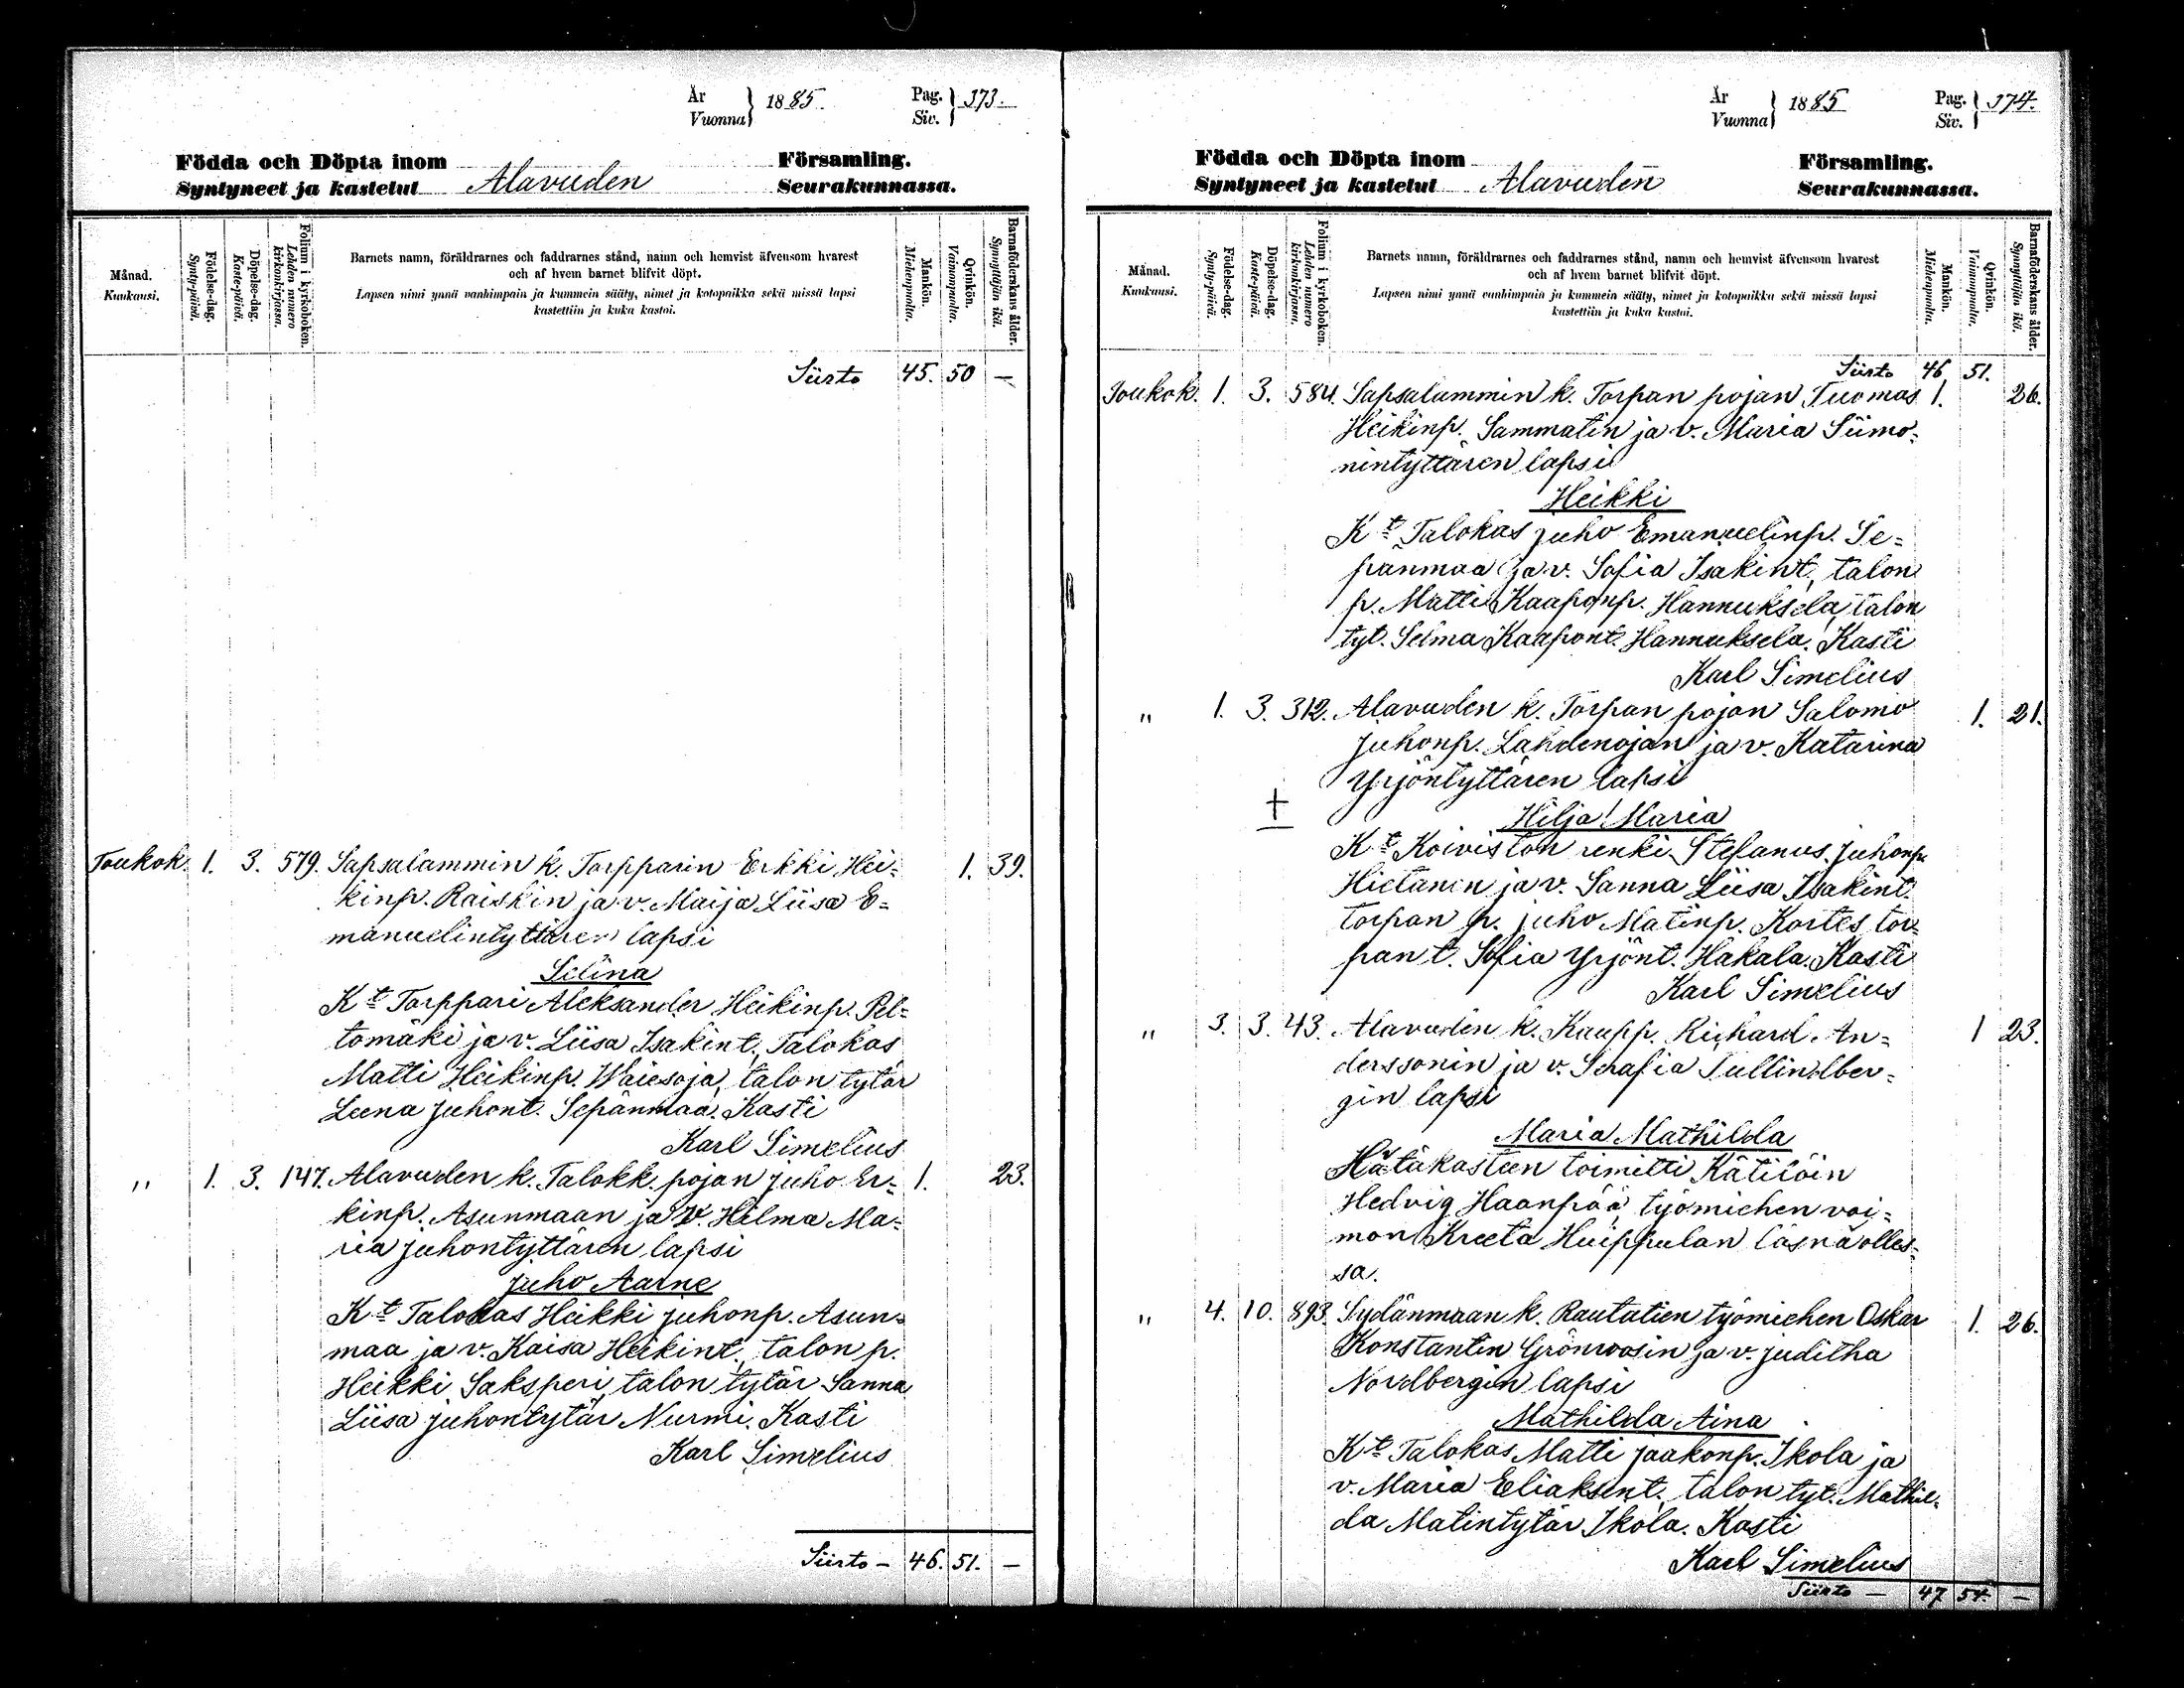 År
Vuonna } 1885. Pag.
Siv. } 373.
Födda och Döpta inom Församling.
Syntyneet ja kastetut Alavuden Seurakunnassa.
Månad.
Kuukausi.
Födelse-dag.
Synty-päivä.
Döpelse-dag.
Kaste-päivä.
Folium i kyrkoboken.
Lehden numero
kirkonkirjassa.
Barnets namn, föräldrarnes och faddrarnes stånd, namn och hemvist äfvensom hvarest
och af hvem barnet blifvit döpt.
Lapsen nimi ynnä vanhimpain ja kummein sääty, nimet ja kotopaikka sekä missä lapsi
kastettiin ja kuka kastoi.
Mankön.
Miehenpuolta.
Qvinkön.
Vaimonpuolta.
Barnaföderskans ålder.
Synnyttäjän ikä.
Siirto 45. 50 —
Toukok. 1. 3. 579. Sapsalammin k. Torpparin Erkki Hei= 1. 39.
kinp. Raiskin ja v. Maija Liisa E=
manuelintyttären lapsi
Selina
Kt Torppari Aleksander Heikinp. Pel=
tomäki ja v. Liisa Isakint, Talokas
Matti Heikinp. Waiesoja, talon tytär
Leena Juhont. Sepänmaa. Kasti
Karl Simelius
" 1. 3. 147. Alavuden k. Talokk. pojan Juho Er= 1. 23.
kinp. Asunmaan ja v. Hilma Ma=
ria Juhontyttären lapsi
Juho Aarne
Kt Talokas Heikki Juhonp. Asun=
maa ja v. Kaisa Heikint, talon p.
Heikki Saksperi, talon tytär Sanna
Liisa Juhontytär Nurmi. Kasti
Karl Simelius
Siirto — 46. 51. —
År
Vuonna } 1885 Pag.
Siv. } 374.
Födda och Döpta inom Församling.
Syntyneet ja kastetut Alavuden Seurakunnassa.
Månad.
Kuukausi.
Födelse-dag.
Synty-päivä.
Döpelse-dag.
Kaste-päivä.
Folium i kyrkoboken.
Lehden numero
kirkonkirjassa.
Barnets namn, föräldrarnes och faddrarnes stånd, namn och hemvist äfvensom hvarest
och af hvem barnet blifvit döpt.
Lapsen nimi ynnä vanhimpain ja kummein sääty, nimet ja kotopaikka sekä missä lapsi
kastettiin ja kuka kastoi.
Mankön.
Miehenpuolta.
Qvinkön.
Vaimonpuolta.
Barnaföderskans ålder.
Synnyttäjän ikä.
Siirto 46 51.
Toukok. 1. 3. 584. Sapsalammin k. Torpan pojan Tuomas 1. 26.
Heikinp. Sammatin ja v. Maria Siimo=
nintyttären lapsi
Heikki
Kt Talokas Juho Emanuelinp. Se=
pänmaa ja v. Sofia Isakint, talon
p. Matti Kaaponp. Hannuksela, talon
tyt. Selma Kaapont. Hannuksela. Kasti
Karl Simelius
" 1. 3. 312. Alavuden k. Torpan pojan Salomo 1. 21.
Juhonp. Lahdenojan ja v. Katarina
Yrjöntyttären lapsi
†
Hilja Maria
Kt Koiviston renki Stefanus Juhonp.
Hietanen ja v. Sanna Liisa Isakint.
torpan p. Juho Matinp. Kortes, tor=
pan t. Sofia Yrjönt. Hakala. Kasti
Karl Simelius
" 3. 3. 43. Alavuden k. Kaupp. Richard An= 1 23.
derssonin ja v. Serafia Sullindber=
gin lapsi
Maria Mathilda
Hätäkasteen toimitti Kätilöin
Hedvig Haanpää työmiehen vai=
mon Kreeta Huippulan läsnä olles=
sa.
" 4. 10. 893. Sydänmaan k. Rautatien työmiehen Oskar 1. 26.
Konstantin Grönroosin ja v. Juditha
Nordbergin lapsi
Mathilda Aina
Kt Talokas Matti Jaakonp. Ikola ja
v. Maria Eliaksent, talon tyt. Mathil=
da Matintytär Ikola. Kasti
Karl Simelius
Siirto — 47 54. —